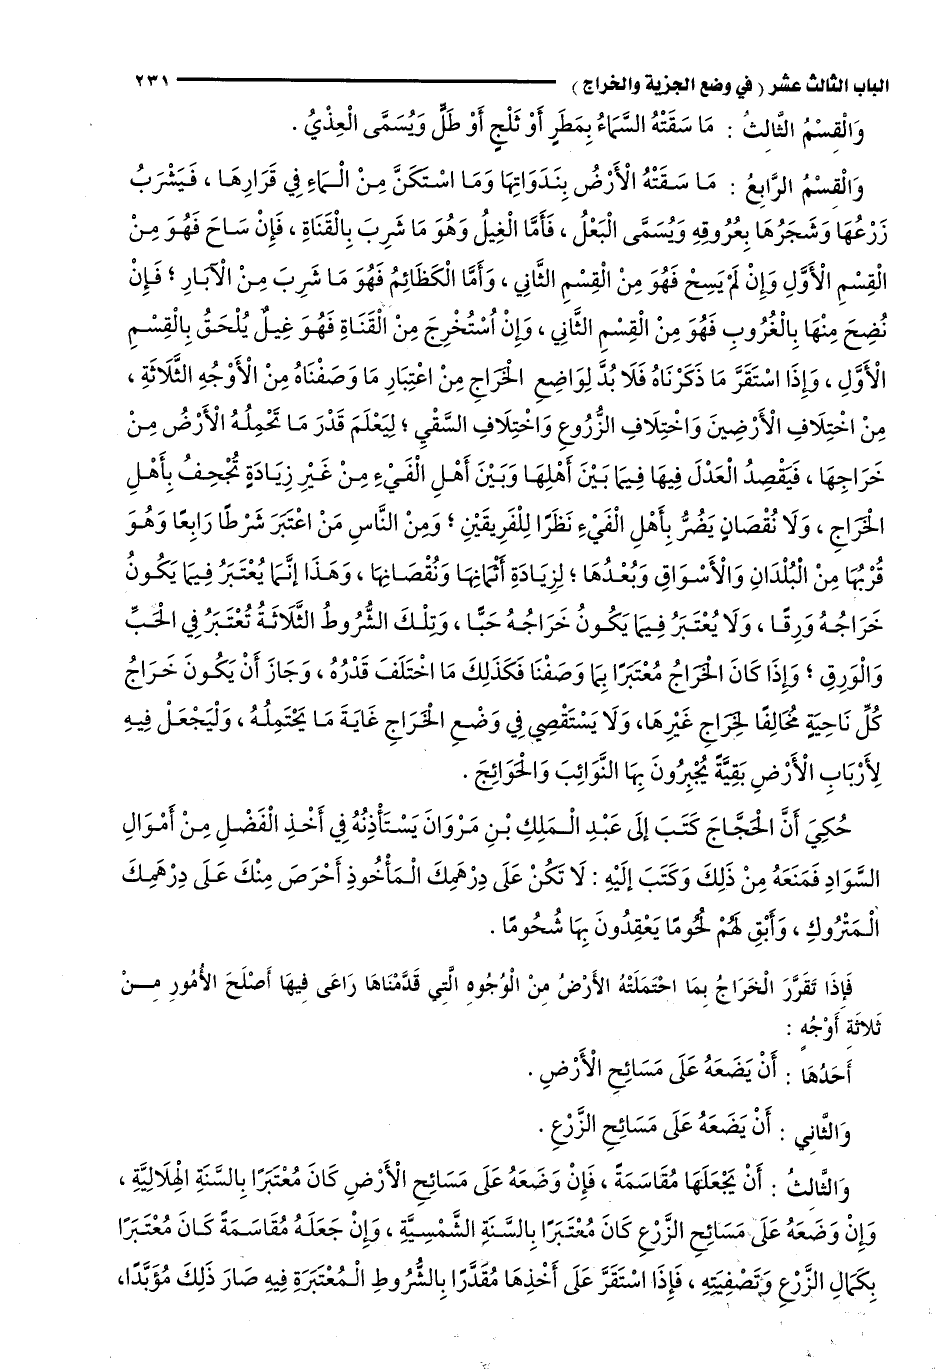 الباب الثالث عشر ( في وضع الجزية والخراج ) ٢٣١
وَالْقِسْمُ الثَّالِثُ : مَا سَقَتْهُ السَّمَاءُ بِمَطَرٍ أَوْ ثَلْجٍ أَوْ طَلٍّ وَيُسَمَّى الْعِذْيُ .
وَالْقِسْمُ الرَّابِعُ : مَا سَقَتْهُ الْأَرْضُ بِنَدَوَاتِهَا وَمَا اسْتَكَنَّ مِنْ الْمَاءِ فِي قَرَارِهَا ، فَيَشْرَبُ
زَرْعُهَا وَشَجَرُهَا بِعُرُوقِهِ وَيُسَمَّى الْبَعْلُ ، فَأَمَّا الْغِيلُ وَهُوَ مَا شَرِبَ بِالْقَنَاةِ ، فَإِنْ سَاحَ فَهُوَ مِنْ
الْقِسْمِ الْأَوَّلِ وَإِنْ لَمْ يَسِحْ فَهُوَ مِنْ الْقِسْمِ الثَّانِي ، وَأَمَّا الْكَظَائِمُ فَهُوَ مَا شَرِبَ مِنْ الْآبَارِ ؛ فَإِنْ
نُضِحَ مِنْهَا بِالْغُرُوبِ فَهُوَ مِنْ الْقِسْمِ الثَّانِي ، وَإِنْ اُسْتُخْرِجَ مِنْ الْقَنَاةِ فَهُوَ غِيلٌ يُلْحَقُ بِالْقِسْمِ
الْأَوَّلِ ، وَإِذَا اسْتَقَرَّ مَا ذَكَرْنَاهُ فَلَا بُدَّ لِوَاضِعِ الْخَرَاجِ مِنْ اعْتِبَارِ مَا وَصَفْنَاهُ مِنْ الْأَوْجُهِ الثَّلَاثَةِ ،
مِنْ اخْتِلَافِ الْأَرْضِينَ وَاخْتِلَافِ الزُّرُوعِ وَاخْتِلَافِ السَّقْيِ ؛ لِيَعْلَمَ قَدْرَ مَا تَحْمِلُهُ الْأَرْضُ مِنْ
خَرَاجِهَا ، فَيَقْصِدُ الْعَدْلَ فِيهَا فِيمَا بَيْنَ أَهْلِهَا وَبَيْنَ أَهْلِ الْفَيْءِ مِنْ غَيْرِ زِيَادَةٍ تُجْحِفُ بِأَهْلِ
الْخَرَاجِ ، وَلَا نُقْصَانٍ يَضُرُّ بِأَهْلِ الْفَيْءِ نَظَرًا لِلْفَرِيقَيْنِ ؛ وَمِنْ النَّاسِ مَنْ اعْتَبَرَ شَرْطًا رَابِعًا وَهُوَ
قُرْبُهَا مِنْ الْبُلْدَانِ وَالْأَسْوَاقِ وَبُعْدُهَا ؛ لِزِيَادَةِ أَثْمَانِهَا وَنُقْصَانِهَا ، وَهَذَا إنَّمَا يُعْتَبَرُ فِيمَا يَكُونُ
خَرَاجُهُ وَرِقًا ، وَلَا يُعْتَبَرُ فِيمَا يَكُونُ خَرَاجُهُ حَبًّا ، وَتِلْكَ الشُّرُوطُ الثَّلَاثَةُ تُعْتَبَرُ فِي الْحَبِّ
وَالْوَرِقِ ؛ وَإِذَا كَانَ الْخَرَاجُ مُعْتَبَرًا بِمَا وَصَفْنَا فَكَذَلِكَ مَا اخْتَلَفَ قَدْرُهُ ، وَجَازَ أَنْ يَكُونَ خَرَاجُ
كُلِّ نَاحِيَةٍ مُخَالِفًا لِخَرَاجِ غَيْرِهَا، وَلَا يَسْتَقْصِي فِي وَضْعِ الْخَرَاجِ غَايَةَ مَا يَحْتَمِلُهُ ، وَلْيَجْعَلْ فِيهِ
لِأَرْبَابِ الْأَرْضِ بَقِيَّةً يُجْبِرُونَ بِهَا النَّوَائِبَ وَالْحَوَائِجَ .
حُكِيَ أَنَّ الْحَجَّاجَ كَتَبَ إلَى عَبْدِ الْمَلِكِ بْنِ مَرْوَانَ يَسْتَأْذِنُهُ فِي أَخْذِ الْفَضْلِ مِنْ أَمْوَالِ
السَّوَادِ فَمَنَعَهُ مِنْ ذَلِكَ وَكَتَبَ إلَيْهِ : لَا تَكُنْ عَلَى دِرْهَمِكَ الْمَأْخُوذِ أَحْرَصَ مِنْكَ عَلَى دِرْهَمِكَ
الْمَتْرُوكِ ، وَأَبْقِ لَهُمْ لُحُومًا يَعْقِدُونَ بِهَا شُحُومًا .
فَإِذَا تَقَرَّرَ الْخَرَاجُ بِمَا احْتَمَلَتْهُ الأَرْضُ مِنْ الْوُجُوهِ الَّتِي قَدَّمْنَاهَا رَاعَى فِيهَا أَصْلَحَ الأُمُورِ مِـنْ
ثَلاثَةِ أَوْجُهٍ :
أَحَدُهَا : أَنْ يَضَعَهُ عَلَى مَسَائِحِ الْأَرْضِ .
وَالثَّانِي : أَنْ يَضَعَهُ عَلَى مَسَائِحِ الزَّرْعِ .
وَالثَّالِثُ : أَنْ يَجْعَلَهَا مُقَاسَمَةً ، فَإِنْ وَضَعَهُ عَلَى مَسَائِحِ الْأَرْضِ كَانَ مُعْتَبَرًا بِالسَّنَةِ الْهِلَالِيَّةِ ،
وَإِنْ وَضَعَهُ عَلَى مَسَائِحِ الزَّرْعِ كَانَ مُعْتَبَرًا بِالسَّنَةِ الشَّمْسِيَّةِ ، وَإِنْ جَعَلَهُ مُقَاسَمَةً كَانَ مُعْتَبَرًا
بِكَمَالِ الزَّرْعِ وَتَصْفِيَتِهِ ، فَإِذَا اسْتَقَرَّ عَلَى أَخْذِهَا مُقَدَّرًا بِالشُّرُوطِ الْمُعْتَبَرَةِ فِيهِ صَارَ ذَلِكَ مُؤَبَّدًا،